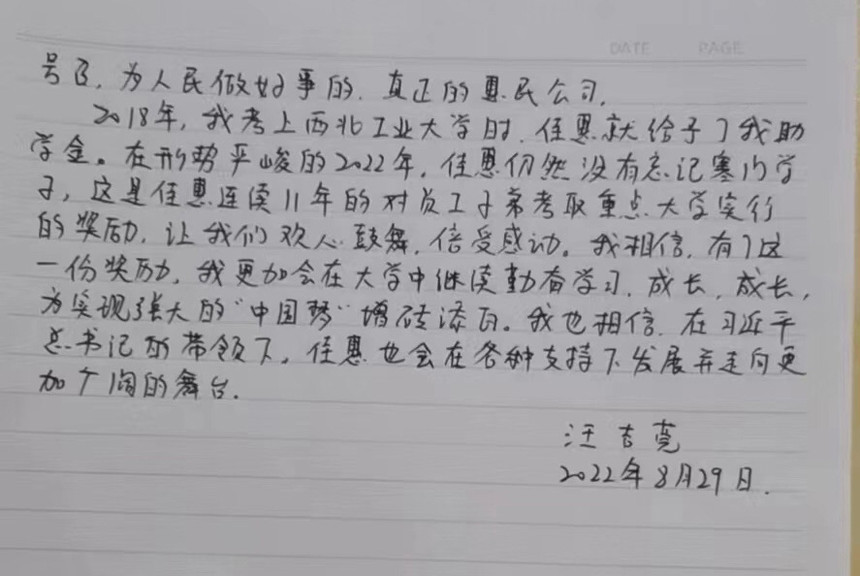 DATE PAGE
号召，为人民做好事的，真正的惠民公司。
2018年，我考上西北工业大学时，佳惠就给予了我助
学金。在形势严峻的2022年，佳惠仍然没有忘记寒门学
子，这是佳惠连续11年的对员工子弟考取重点大学实行
的奖励，让我们欢心鼓舞，倍受感动。我相信，有了这
一份奖励，我更加会在大学中继续勤奋学习，成长，成长，
为实现强大的“中国梦”增砖添瓦。我也相信，在习近平
总书记的带领下，佳惠也会在各种支持下发展并走向更
加广阔的舞台。
汪吉亮
2022年8月29日.